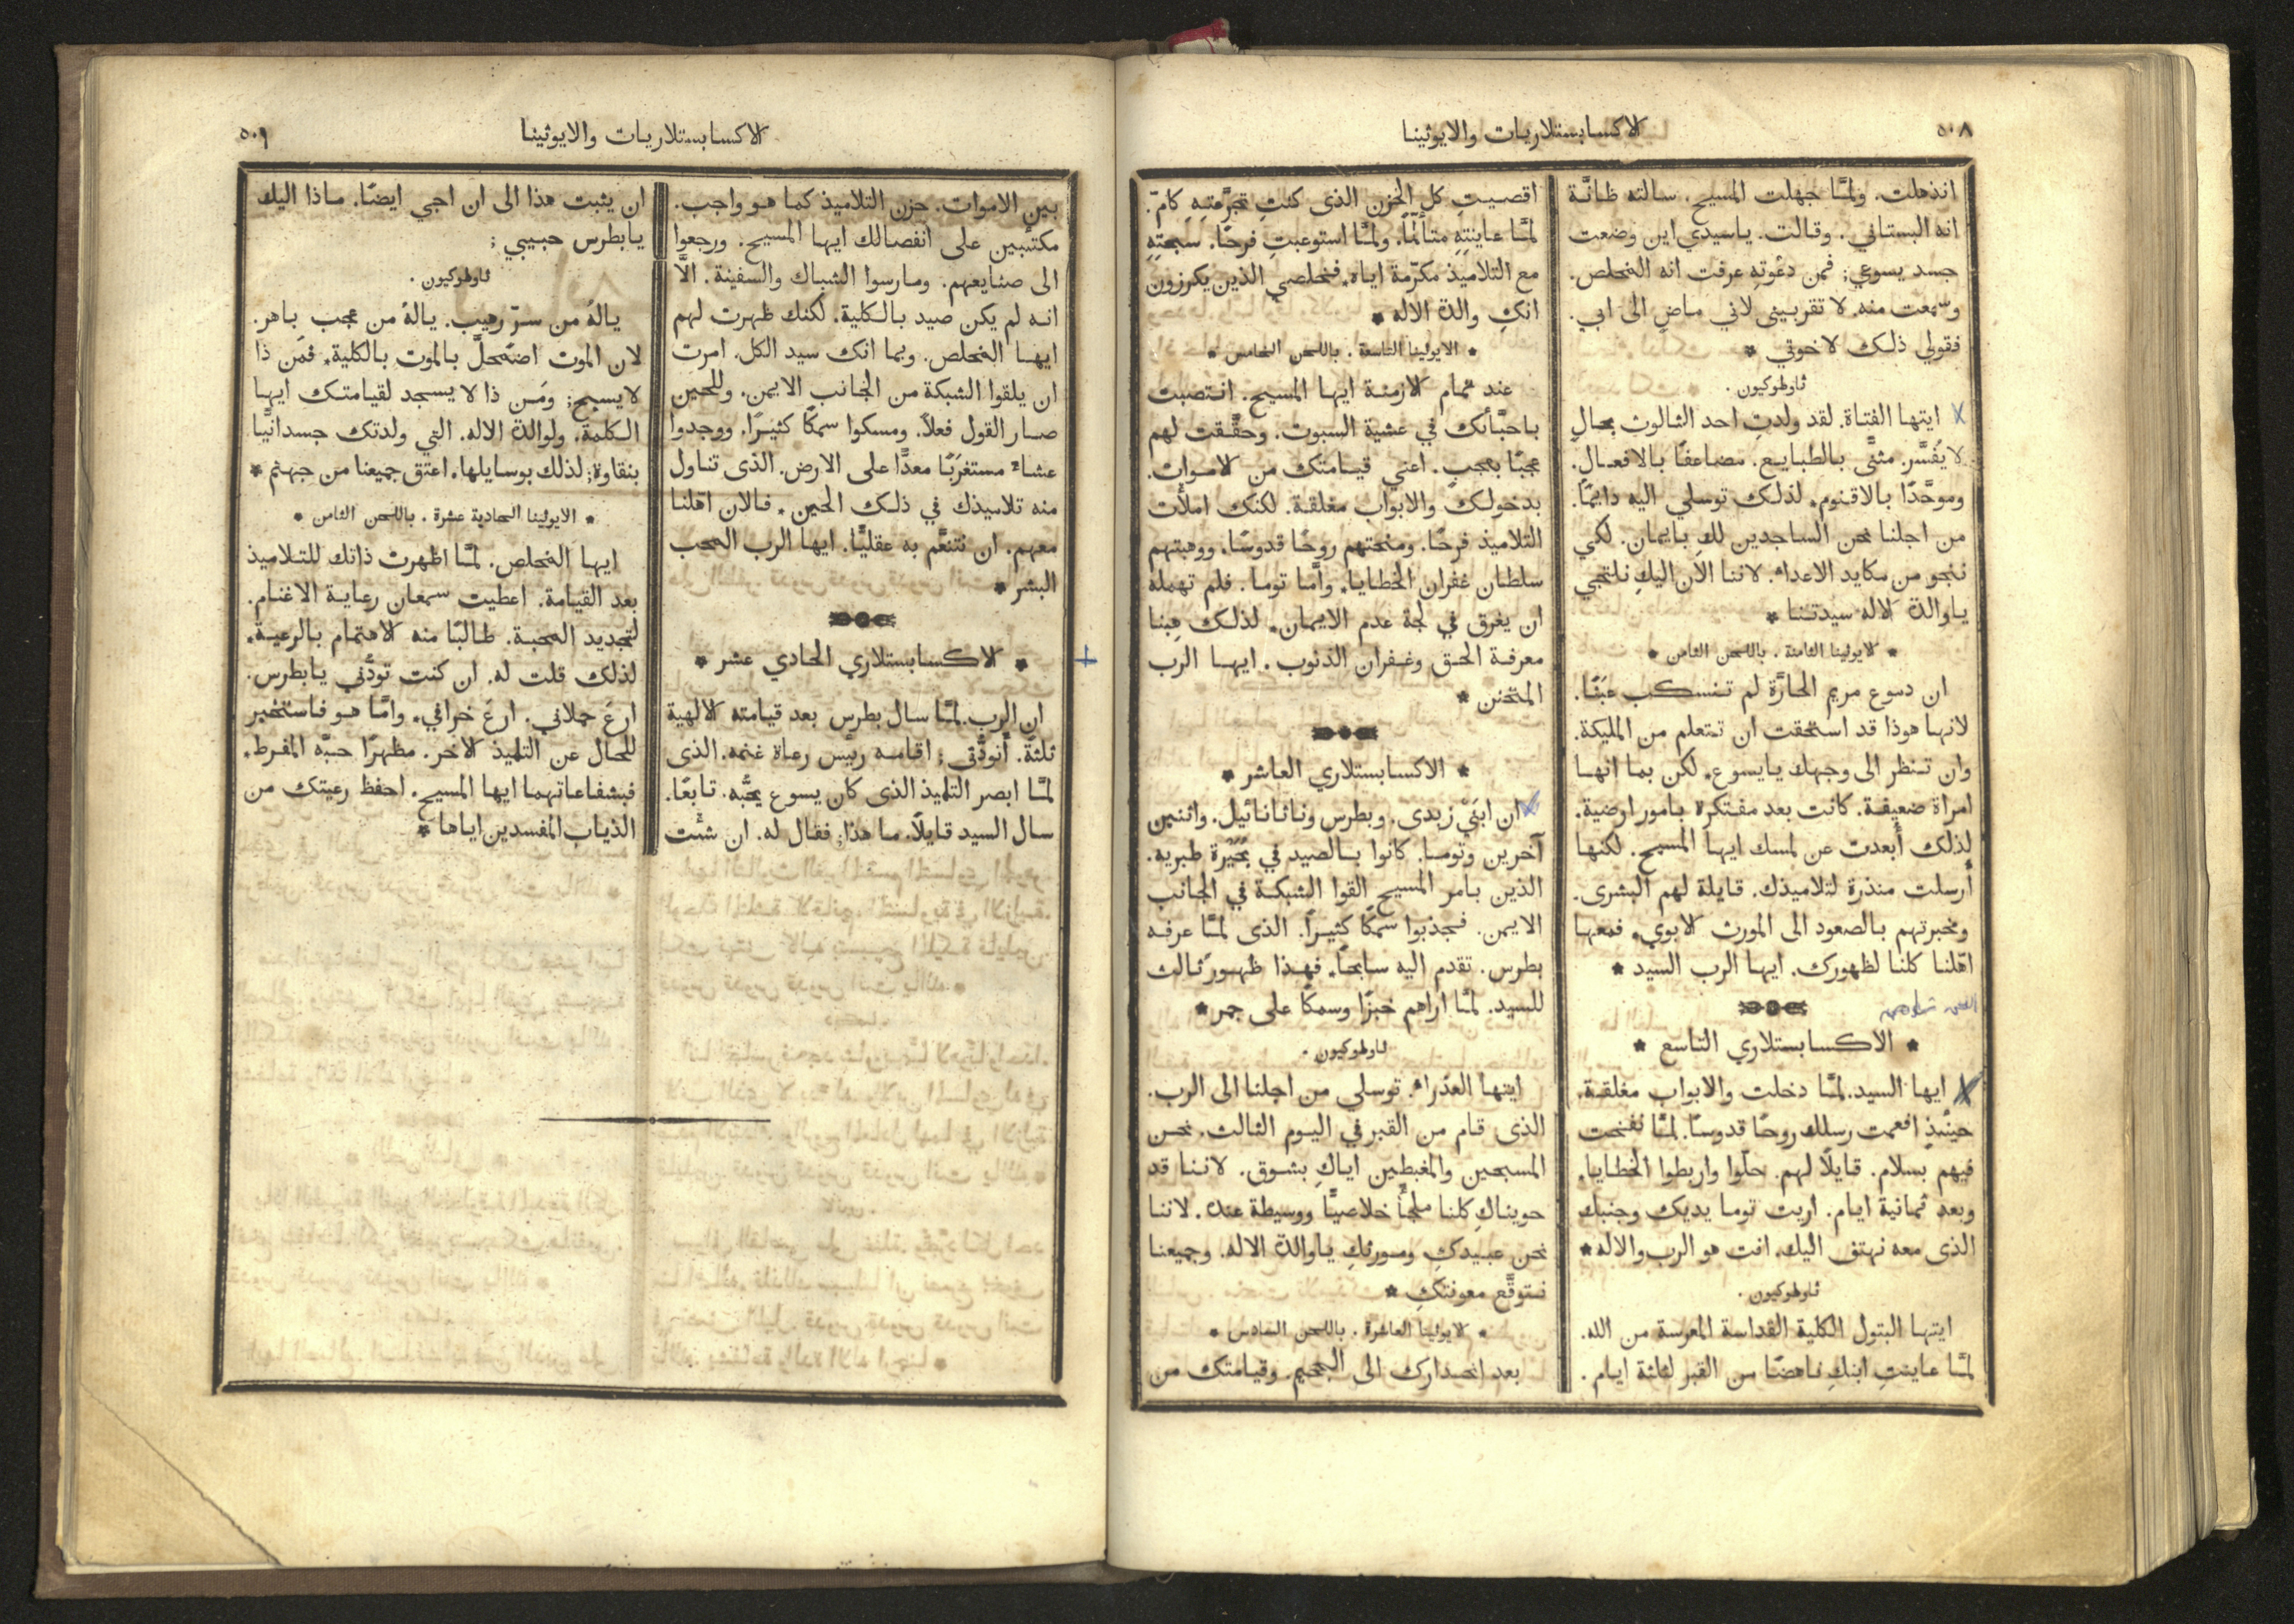 ٥٠٨
الاكسابستلاريات والايوثينا
انذهلت. ولمَّا جهلت المسيح. سالته ظانَّة
انه البستاني. وقالت. ياسيدي اين وضعت
جسد يسوعي; فمن دعوته عرفت انه المخلص.
وسمعت منه. لا تقربيني لاني ماضٍ الى ابي.
فقولي ذلك لاخوتي *
ثاوطوكيون.
ايتها الفتاة. لقد ولدتِ احد الثالوث بحالٍ
لا يُفسَّر. مثنًّى بالطبايع. مضاعفًا بالافعال.
وموحَّدًا بالاقنوم. لذلك توسلي اليه دايمًا.
من اجلنا نحن الساجدين لكِ بايمان. لكي
ننجو من مكايد الاعداء. لاننا الآن اليكِ نلتجي
ياوالدة الاله سيدتنا *
* الايوثينا الثامنة. باللحن الثامن *
ان دموع مريم الحارَّة لم تنسكب عبَثًا.
لانها هوذا قد استحقت ان تتعلم من المليكة.
وان تنظر الى وجهك يايسوع. لكن بما انها
امراة ضعيفة. كانت بعد مفتكرة بامور ارضية.
لذلك أُبعدت عن لمسك ايها المسيح. لكنها
أُرسلت منذرة لتلاميذك. قايلة لهم البشرى.
ومخبرتهم بالصعود الى المورث الابوي. فمعها
اهّلنا كلنا لظهورك. ايها الرب السيد *
* الاكسابستلاري التاسع *
ايها السيد. لمَّا دخلت والابواب مغلقة.
حينئذٍ افعمت رسلك روحًا قدوسًا. لمَّا نفخت
فيهم بسلام. قايلًا لهم. حلّوا واربطوا الخطايا.
وبعد ثمانية ايام. اريت توما يديك وجنبك
الذى معه نهتف اليك. انت هو الرب والاله *
ثاوطوكيون.
ايتها البتول الكلية القداسة العروسة من الله.
لمَّا عاينتِ ابنكِ ناهضًا من القبر لثلثة ايام.
اقصيتِ كل الحزن الذى كنتِ تجرَّعتِهِ كامّ.
لمَّا عاينتِهِ متألّمًا. ولمَّا استوعبتِ فرحًا. سبحتِهِ
مع التلاميذ مكرّمة اياه. فخلصي الذين يكرزون
انكِ والدة الاله *
* الايوثينا التاسعة. باللحن الخامس *
عند تمام الازمنة ايها المسيح. انتصبت
باحبّأنك في عشية السبوت. وحقَّقت لهم
عجبًا بعجبٍ. اعني قيامتك من الاموات.
بدخولك والابواب مغلقة. لكنك املأت
التلاميذ فرحًا. ومنحتهم روحًا قدوسًا. ووهبتهم
سلطان غفران الخطايا. وأمَّا توما. فلم تهمله
ان يغرق في لجة عدم الايمان. لذلك هبنا
معرفة الحق وغفران الذنوب. ايها الرب
المتحنن *
* الاكسابستلاري العاشر *
ان ابنَيْ زبدى. وبطرس وناثانائيل. واثنين
آخرين وتوما. كانوا بالصيد في بُحَيْرة طبرية.
الذين بامر المسيح القوا الشبكة في الجانب
الايمن. فجذبوا سمكًا كثيرًا. الذى لمَّا عرفه
بطرس. تقدم اليه سابحًا. فهذا ظهورٌ ثالث
للسيد. لمَّا اراهم خبزًا وسمكًا على جمر *
ثاوطوكيون.
ايتها العذراء. توسلي من اجلنا الى الرب.
الذى قام من القبر في اليوم الثالث. نحن
المسبحين والمغبطين اياكِ بشوق. لاننا قد
حويناكِ كلنا ملجأً خلاصيًّا ووسيطة عنده. لاننا
نحن عبيدكِ وورثكِ ياوالدة الاله. وجميعنا
نتوقَّع معونتكِ *
* الايوثينا العاشرة. باللحن السادس *
بعد انحدارك الى الجحيم. وقيامتك من
الاكسابستلاريات والايوثينا
٥٠٩
بين الاموات. حزن التلاميذ كما هو واجب.
مكتئبين على انفصالك ايها المسيح. ورجعوا
الى صنايعهم. ومارسوا الشباك والسفينة. الَّا
انه لم يكن صيد بالكلية. لكنك ظهرت لهم
ايها المخلص. وبما انك سيد الكل. امرت
ان يلقوا الشبكة من الجانب الايمن. وللحين
صار القول فعلًا. ومسكوا سمكًا كثيرًا. ووجدوا
عشاءً مستغرَبًا معدًّا على الارض. الذى تناول
منه تلاميذك في ذلك الحين. فالان اهّلنا
معهم. ان نتنعَّم به عقليًّا. ايها الرب المحب
البشر *
* الاكسابستلاري الحادي عشر *
ان الرب. لمَّا سال بطرس بعد قيامته الالهية
ثلثةً. أتودُّني; اقامه رييس رعاة غنمه. الذى
لمَّا ابصر التلميذ الذى كان يسوع يحبّه. تابعًا.
سال السيد قايلًا. ما هذا; فقال له. ان شئت
ان يثبت هذا الى ان اجي ايضًا. ماذا اليك
يابطرس حبيبي;
ثاوطوكيون.
يالهُ من سرّ رهيب. يالهُ من عجب باهر.
لان الموت اضمحلَّ بالموت بالكلية. فمَن ذا
لا يسبح; ومَن ذا لا يسجد لقيامتك ايها
الكلمة. ولوالدة الاله. التي ولدتك جسدانيًّا
بنقاوة; لذلك بوسايلها. اعتق جميعنا من جهنم *
* الايوثينا الحادية عشرة. باللحن الثامن *
ايها المخلص. لمَّا اظهرت ذاتك للتلاميذ
بعد القيامة. اعطيت سمعان رعاية الاغنام.
لتجديد المحبة. طالبًا منه الاهتمام بالرعية.
لذلك قلت له. ان كنت تودُّني يابطرس.
ارعَ حملاني. ارعَ خرافي. وامَّا هو فاستخبر
للحال عن التلميذ الاخر. مظهرًا حبّه المفرط.
فبشفاعاتهما ايها المسيح. احفظ رعيتك من
الذياب المفسدين اياها *